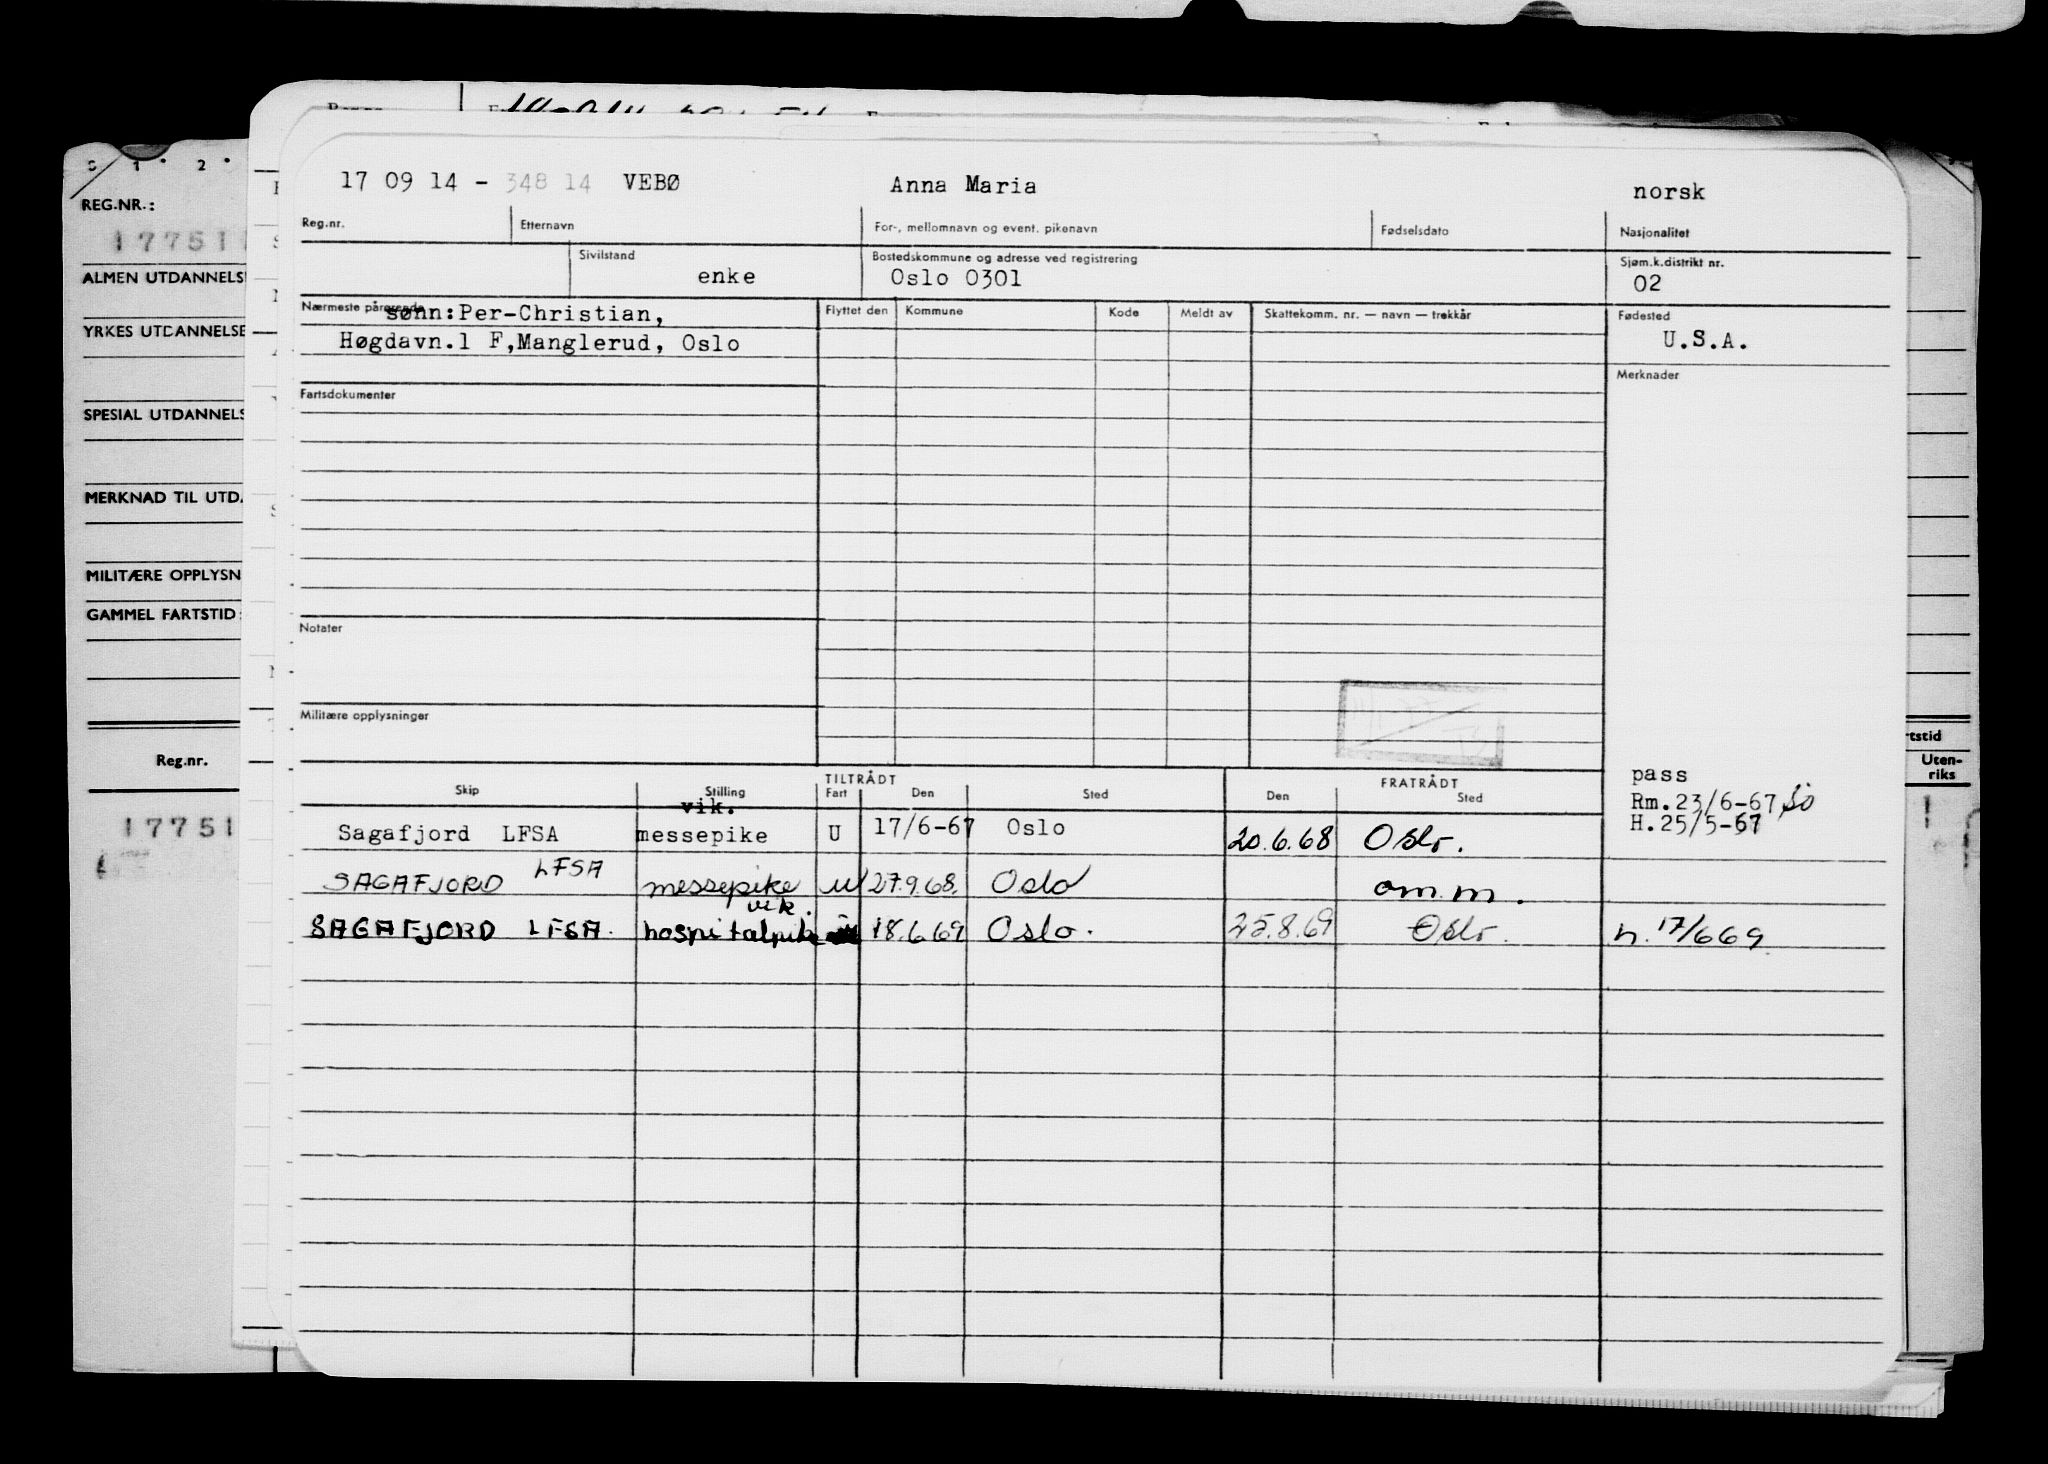 S 1 2
REG.NR.:
17751
ALMEN UTDANNELSE
YRKES UTDANNELSE
SPESIAL UTDANNELS
MERKNAD TIL UTD.
MILITÆRE OPPLYSN
GAMMEL FARTSTID:
Reg.nr.
17751
17 09 14 - 348 14 VEBØ Anna Maria norsk
Reg.nr. Etternavn For-, mellomnavn og event. pikenavn Fødselsdato Nasjonalitet
Sivilstand Bostedskommune og adresse ved registrering Sjøm.k.distrikt nr.
enke Oslo 0301 02
Nærmeste pårørende Flyttet den Kommune Kode Meldt av Skattekomm. nr. — navn — trekkår Fødested
sønn:Per-Christian,
Høgdavn.1 F,Manglerud, Oslo U.S.A.
Merknader
Fartsdokumenter
Notater
Militære opplysninger
TILTRÅDT FRATRÅDT
Skip Stilling Fart Den Sted Den Sted
pass
Rm.23/6-67
H.25/5-67
vik.
Sagafjord LFSA messepike U 17/6-67 Oslo 20.6.68 Oslo.
SAGAFJORD LFSA messepike u 27.9.68. Oslo om.m.
vik.
SAGAFJORD LFSA. hospitalpike 18.6.69 Oslo. 25.8.69 Oslo. h. 17/669
rtstid
Uten-
riks